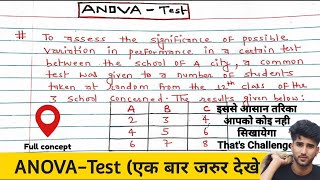 ANOVA-Test
# To assess the significance of possible
variation in performance in a certain test
between the school of A city, a common
test was given to a number of students
taken at random from the 12th class of the
3 school concerned. The results given below:
A B C
2 3 4
4 5 6
6 7 8
इससे आसान तरिका
आपको कोइ नही
सिखायेगा
That's Challenge
Full concept
ANOVA-Test (एक बार जरुर देखे